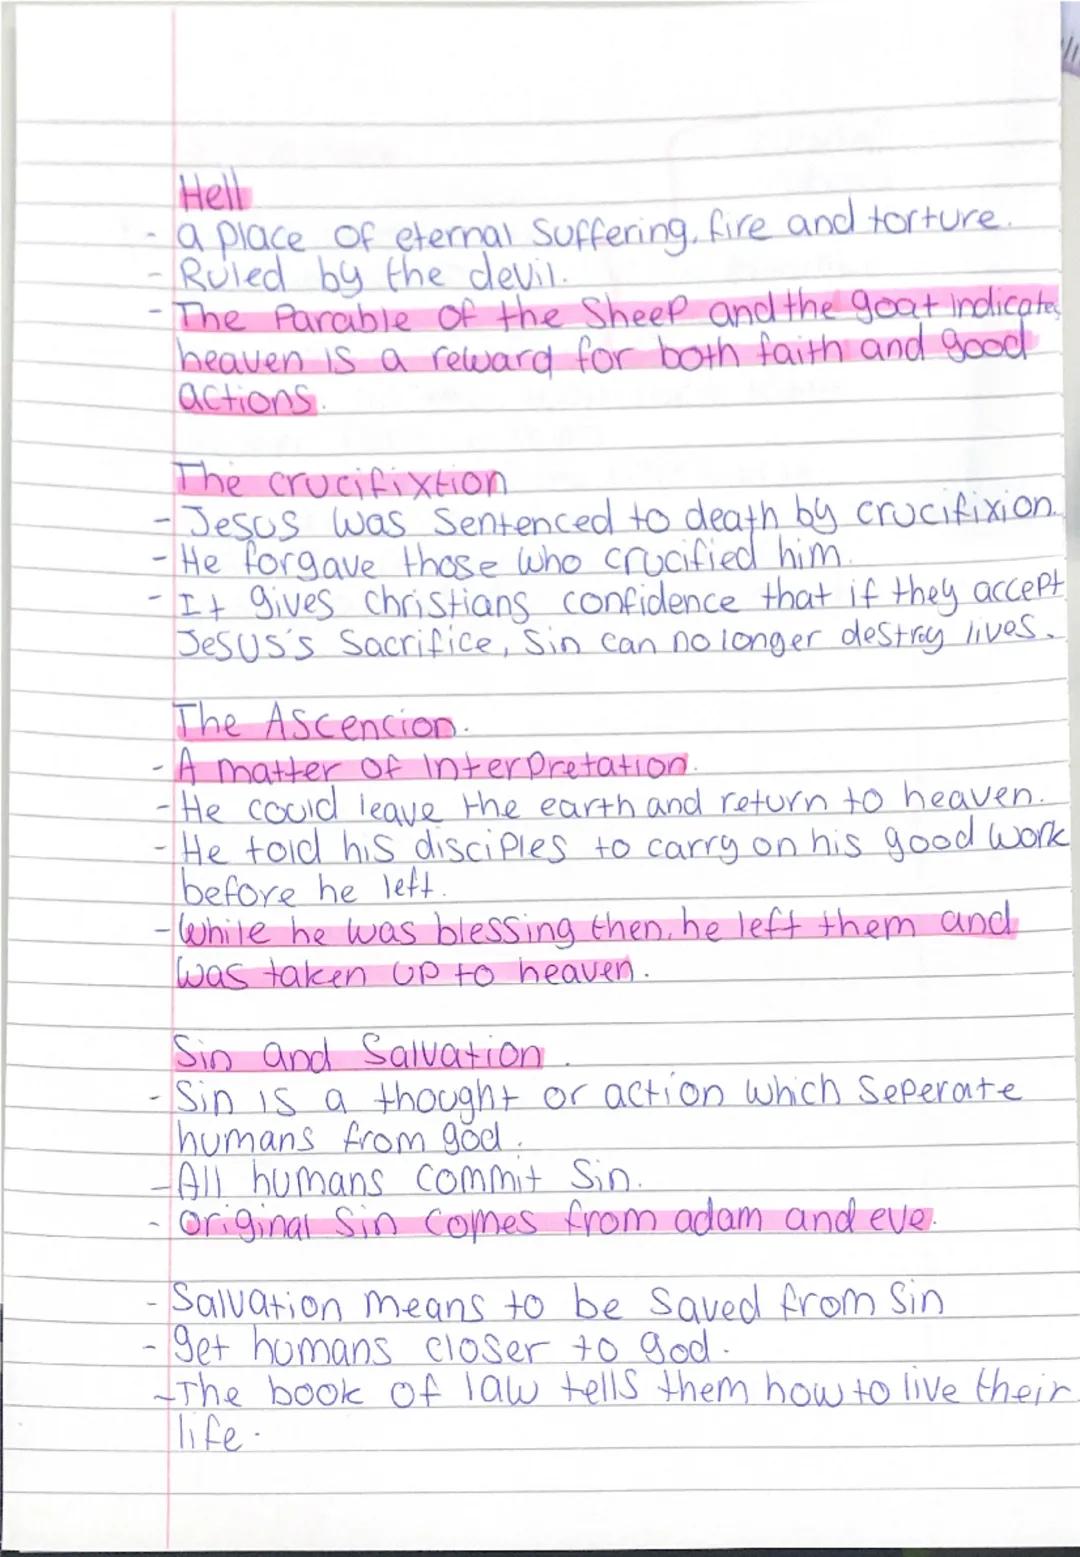 Hell
- a place of eternal suffering, fire and torture.
- Ruled by the devil.
- The Parable of the Sheep and the goat indicates
heaven is a reward for both faith and good
actions.
The crucifixtion
- Jesus was sentenced to death by crucifixion.
- He forgave those who crucified him.
- It gives christians confidence that if they accept
Jesus's sacrifice, sin can no longer destroy lives.
The Ascencion.
- A matter of interpretation.
- He could leave the earth and return to heaven.
- He told his disciples to carry on his good work
before he left.
- While he was blessing then, he left them and
was taken up to heaven.
Sin and Salvation.
- Sin is a thought or action which seperate
humans from god.
- All humans commit sin.
- original sin comes from adam and eve.
- Salvation means to be saved from sin
- get humans closer to god.
- The book of law tells them how to live their
life.